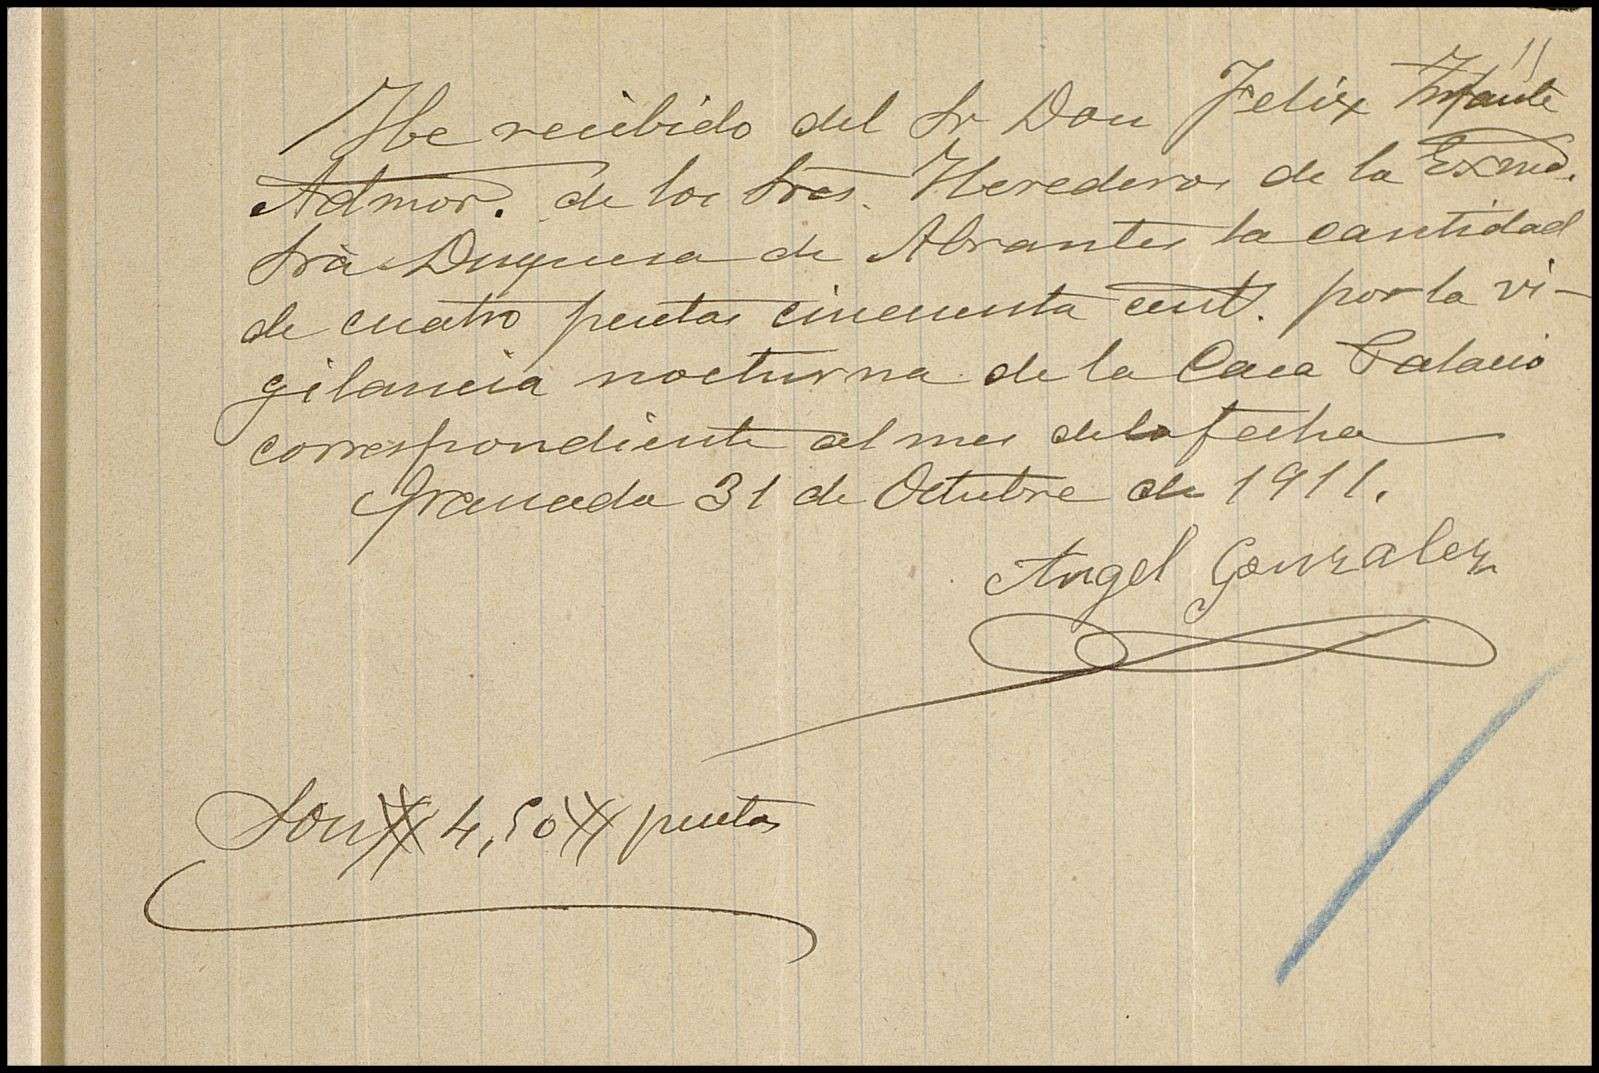 11
He recibido del Sr Don Felix Infante
Admor. de los Sres. Herederos de la Exma.
Sra Duquesa de Abrantes la cantidad
de cuatro pesetas cincuenta cent. por la vi-
gilancia nocturna de la Casa Palacio
correspondiente al mes de la fecha
Granada 31 de Octubre de 1911.
Angel Gonzalez
Son 4,50 pesetas